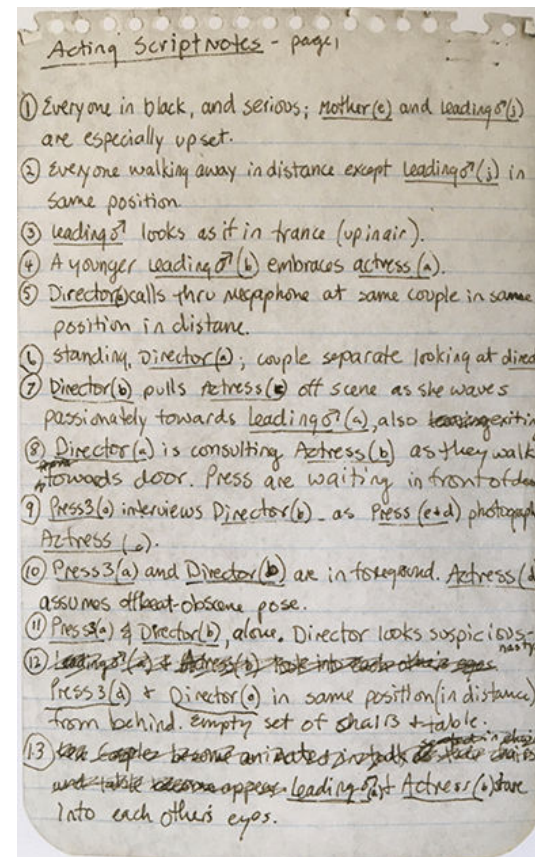 Acting Script Notes - page 1
① Everyone in black, and serious; Mother(e) and Leading♂(j)
are especially upset.
② Everyone walking away in distance except Leading♂(j) in
same position.
③ Leading♂ looks as if in trance (up in air).
④ A younger Leading♂(b) embraces actress(a).
⑤ Director(b) calls thru megaphone at same couple in same
position in distane.
⑥ standing, Director(a); couple separate looking at direc
⑦ Director(b) pulls Actress off scene as she waves
passionately towards Leading♂(a), also exitin
⑧ Director(a) is consulting Actress(b) as they walk
towards door. Press are waiting in front of doo
⑨ Press3(a) interviews Director(b) as Press (e+d) photograph
Actress
⑩ Press3(a) and Director(b) are in foreground. Actress(d
assumes offbeat-obscene pose.
⑪ Press3(a) & Director(b), alone. Director looks suspicious-
nasty
⑫ Leading♂(a) & Actress(b) look into each others eyes.
Press3(d) & Director(a) in same position (in distance)
from behind. Empty set of chairs + table.
⑬ Couples become animated instead
and table become appear. Leading♂(a) & Actress(b) stare
into each others eyes.